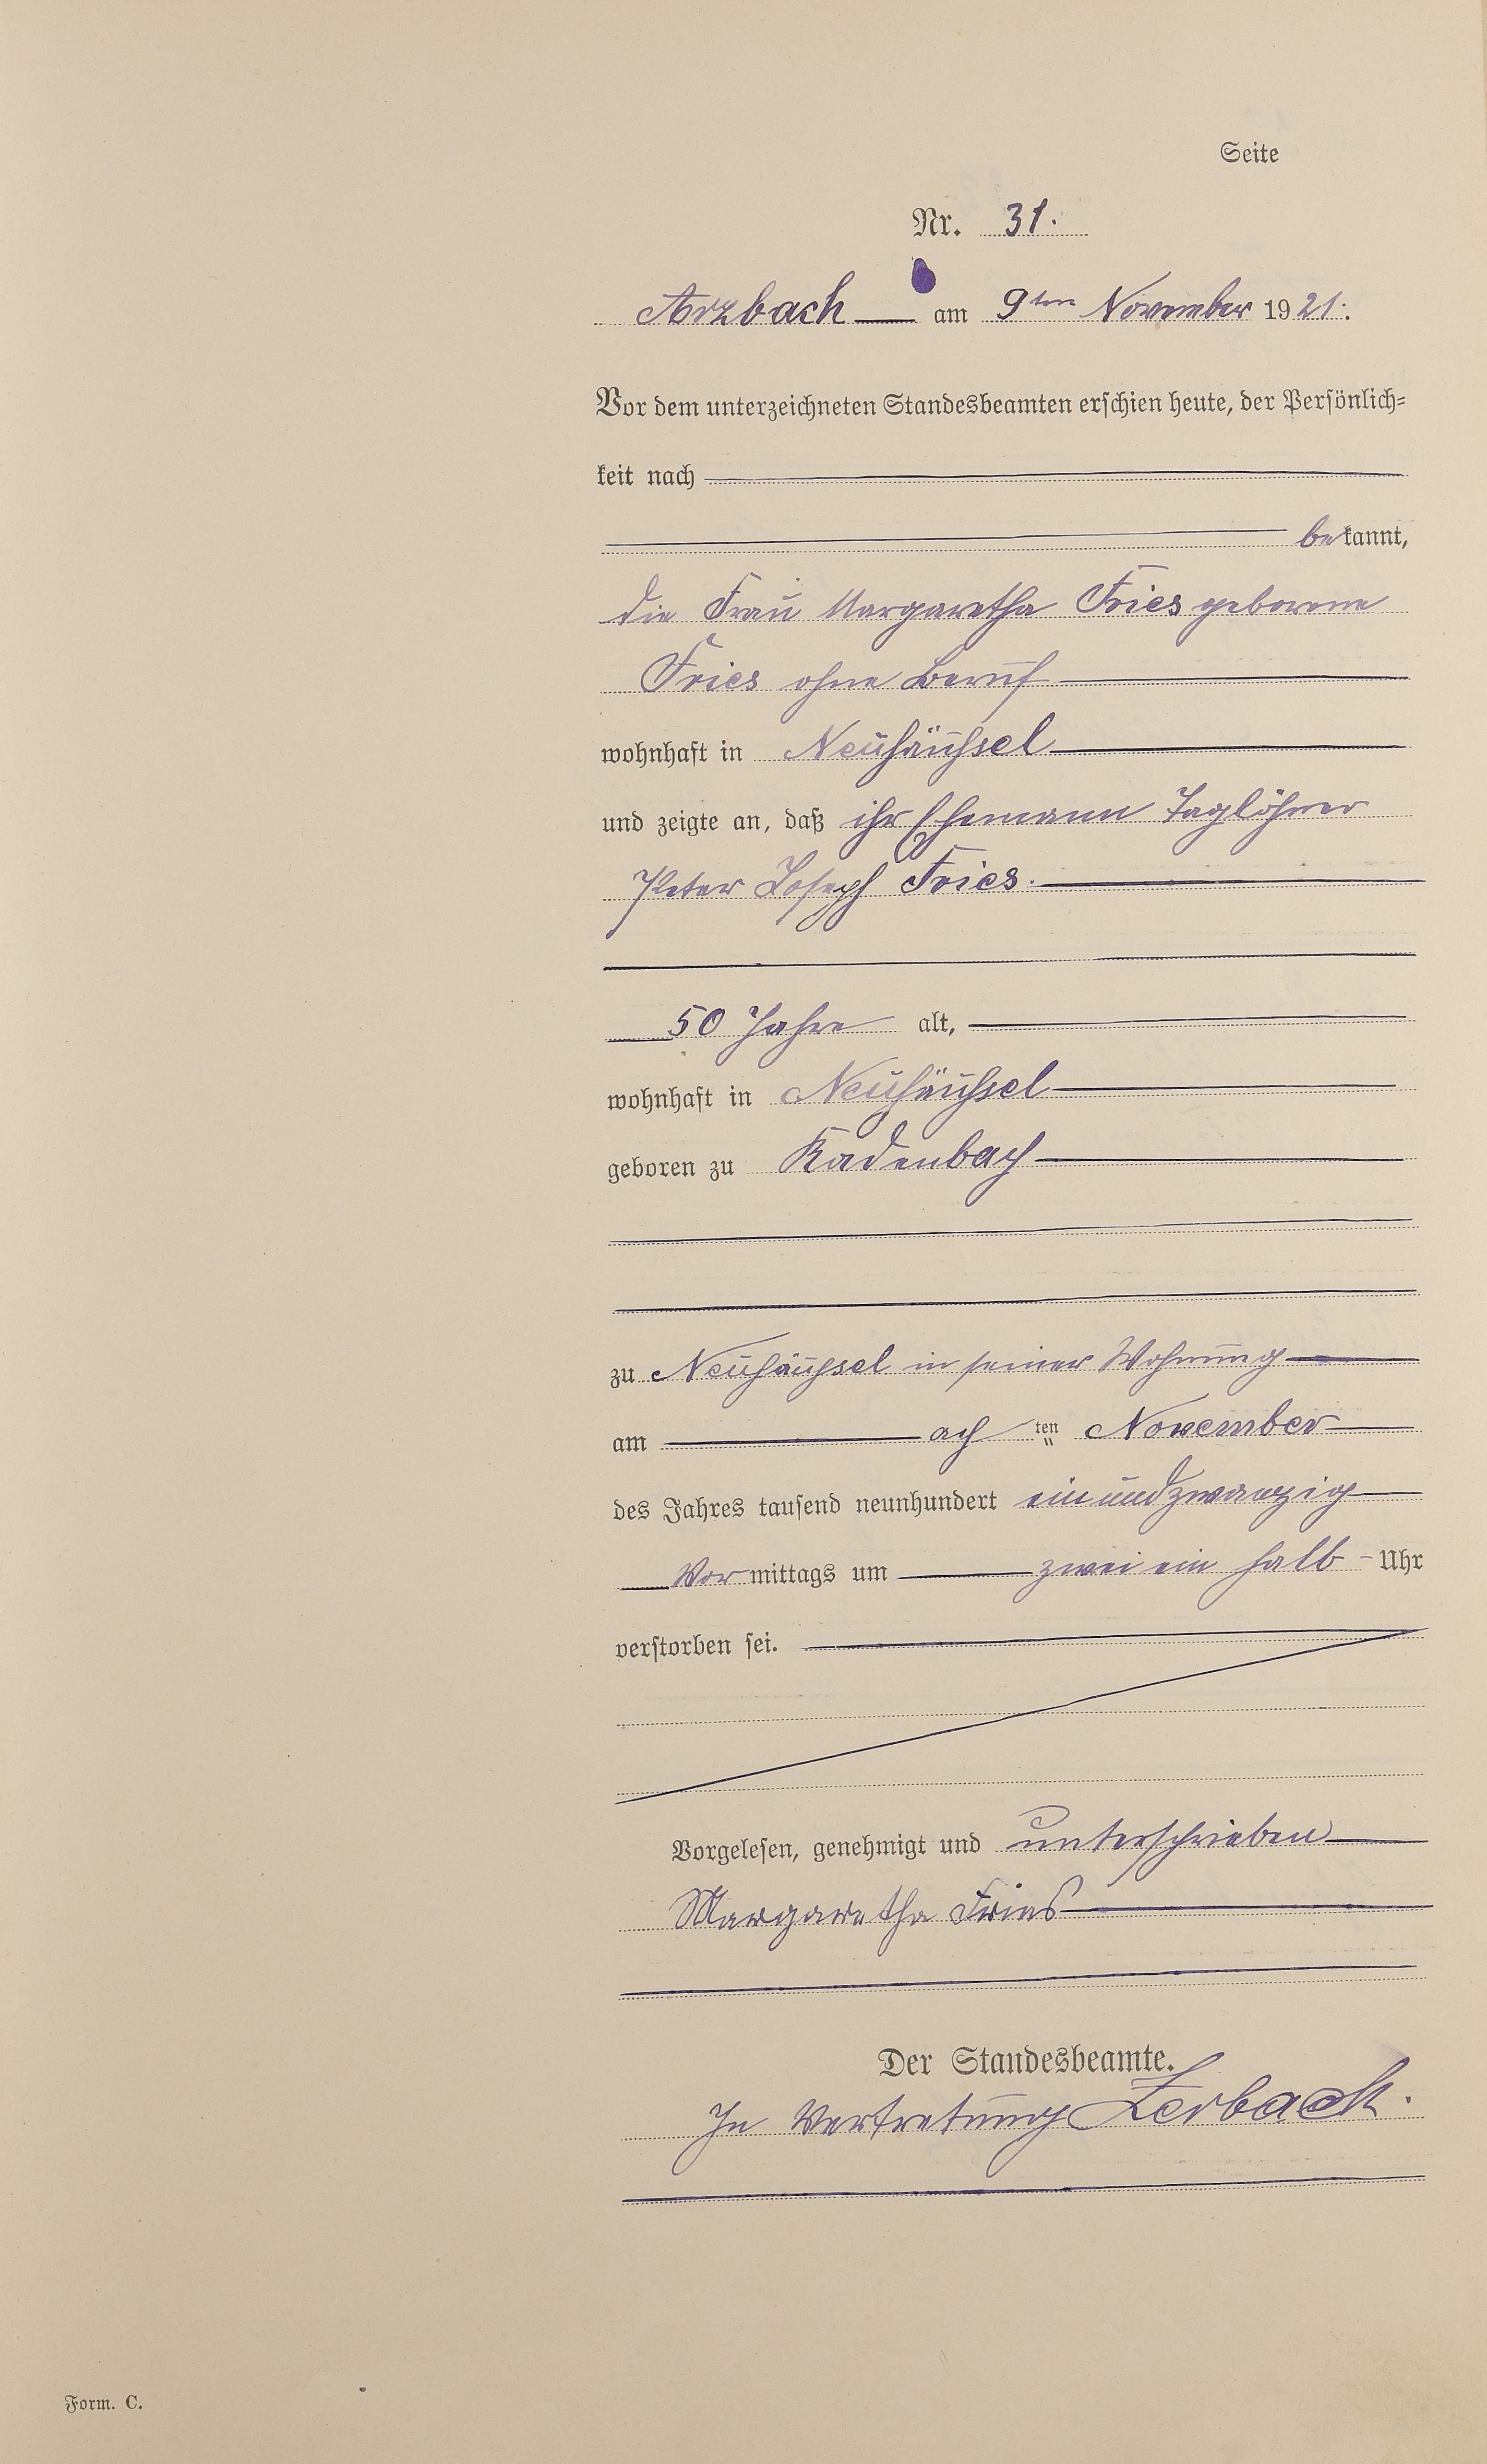 Seite
Nr. 31.
Arzbach am 9ten November 1921.
Vor dem unterzeichneten Standesbeamten erschien heute, der Persönlich=
keit nach
bekannt,
die Frau Margaretha Fries geborene
Fries ohne Beruf
wohnhaft in Neuhäusel
und zeigte an, daß ihr Ehemann Taglöhner
Peter Joseph Fries.
50 Jahre alt,
wohnhaft in Neuhäusel
geboren zu Kadenbach
zu Neuhäusel in seiner Wohnung
am ach ten November
des Jahres tausend neunhundert ein und zwanzig
Vormittags um zwei ein halb Uhr
verstorben sei.
Vorgelesen, genehmigt und unterschrieben
Margaretha Fries
Der Standesbeamte.
In Vertretung Zerbach.
Form. C.